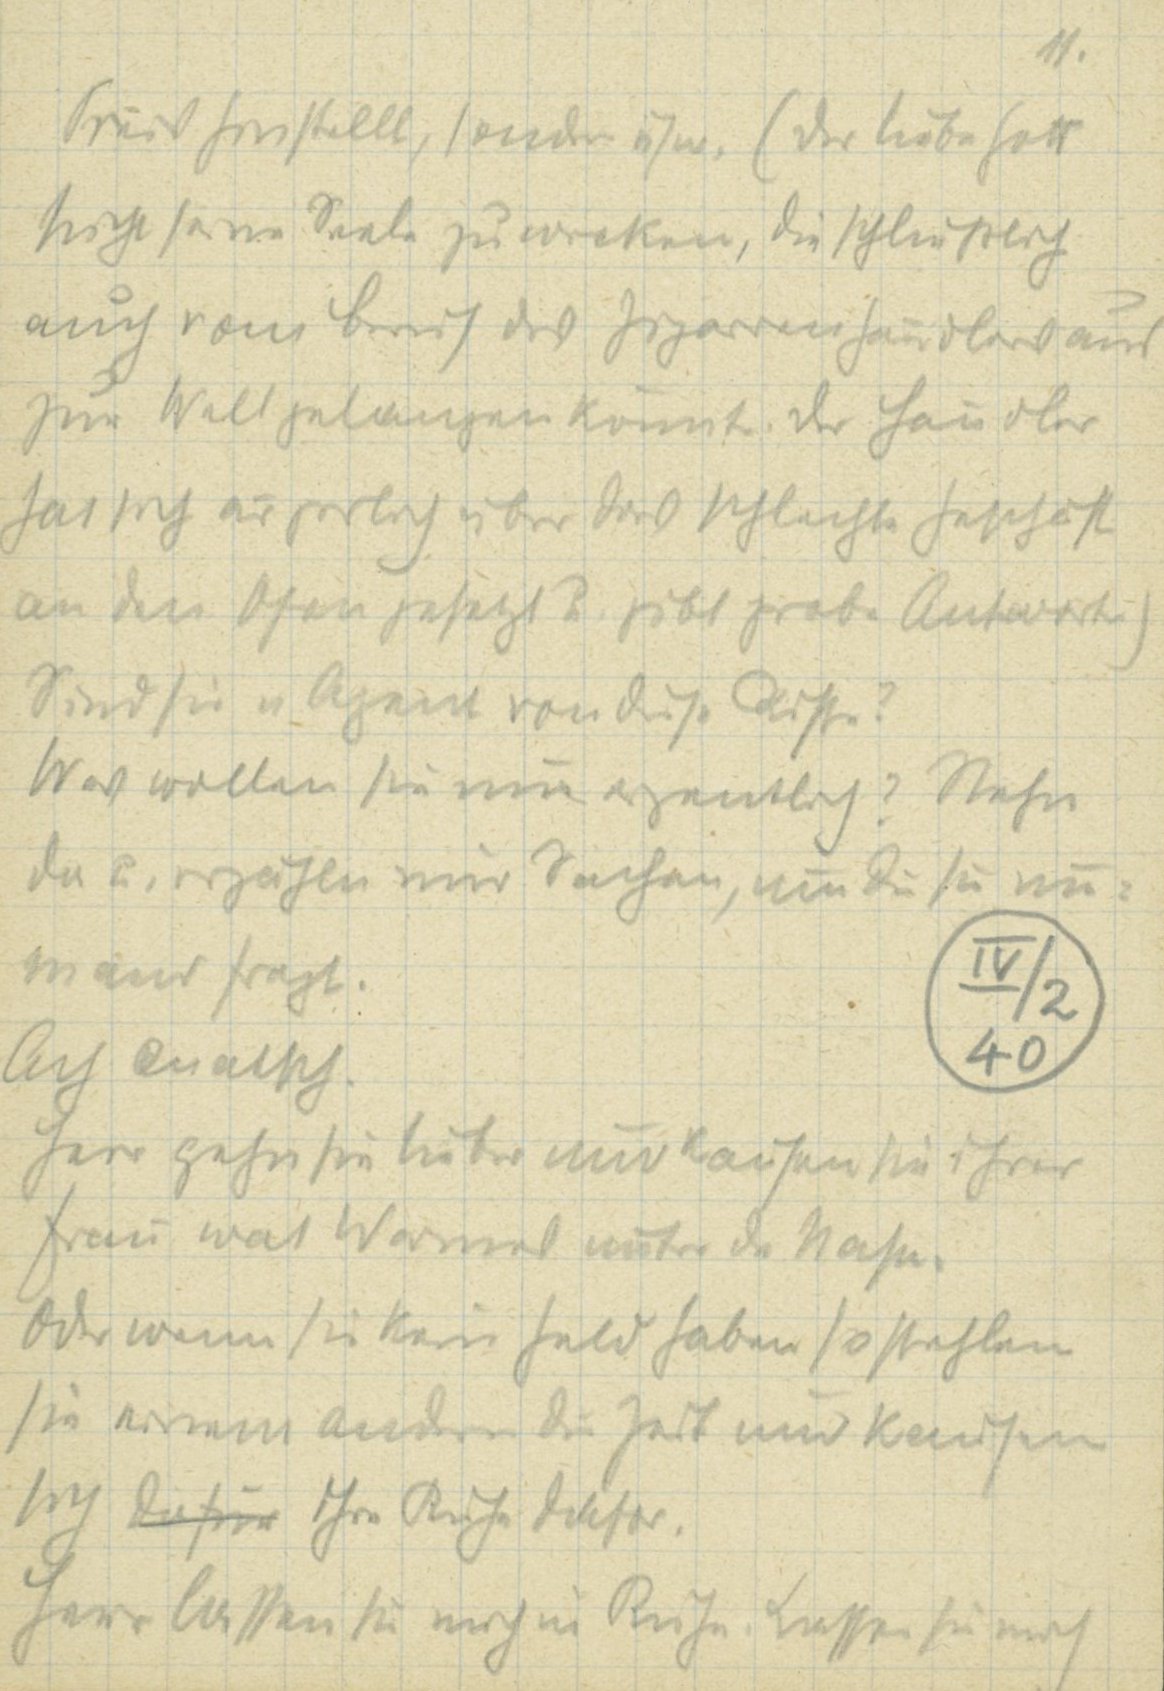 11.
Preis hinstellt, sondern usw. (Der liebe Gott
sucht seine Seele zu wecken, die schließlich
auch vom Beruf des Zigarrenhändlers aus
zur Welt gelangen könnte. Der Händler
hat sich ärgerlich über das schlechte Geschäft
an den Ofen gesetzt u. gibt grobe Antworten)
Sind sie n Agent von diese Kiste?
Was wollen sie nun eigentlich? Stehn
da u. erzählen mir Sachen, um die sie nie=
mand fragt.
IV/2
40
Ach Quatsch.
Herr gehn sie lieber und kaufen sie ihrer
Frau wat Warmes unter de Nase.
Oder wenn sie kein Geld haben so stehlen
sie einem andern die Zeit und kaufen
sich dafür ihre Ruhe dafor.
Herr lassen sie mich in Ruhe. Lassen sie mich